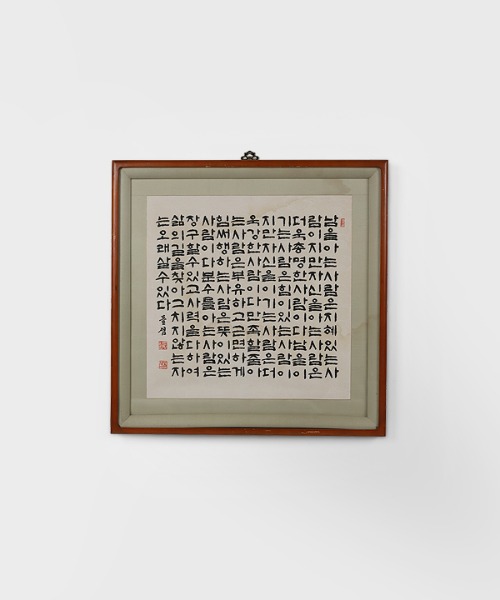 남을아는사람은지혜있는사
람이지만자신을아는사람은
더욱총명한사람이다남을이
기는사람은힘이있는사람이
지만자신을이기는사람은더
욱강한사람이다만족할줄아
는사람은부유하고근면하게
힘써행하는사람은뜻이있는
사람이다분수를아는사람은
장구할수있고사력을다하여
삶의길을찾아그치지않는자
는오래살수있다